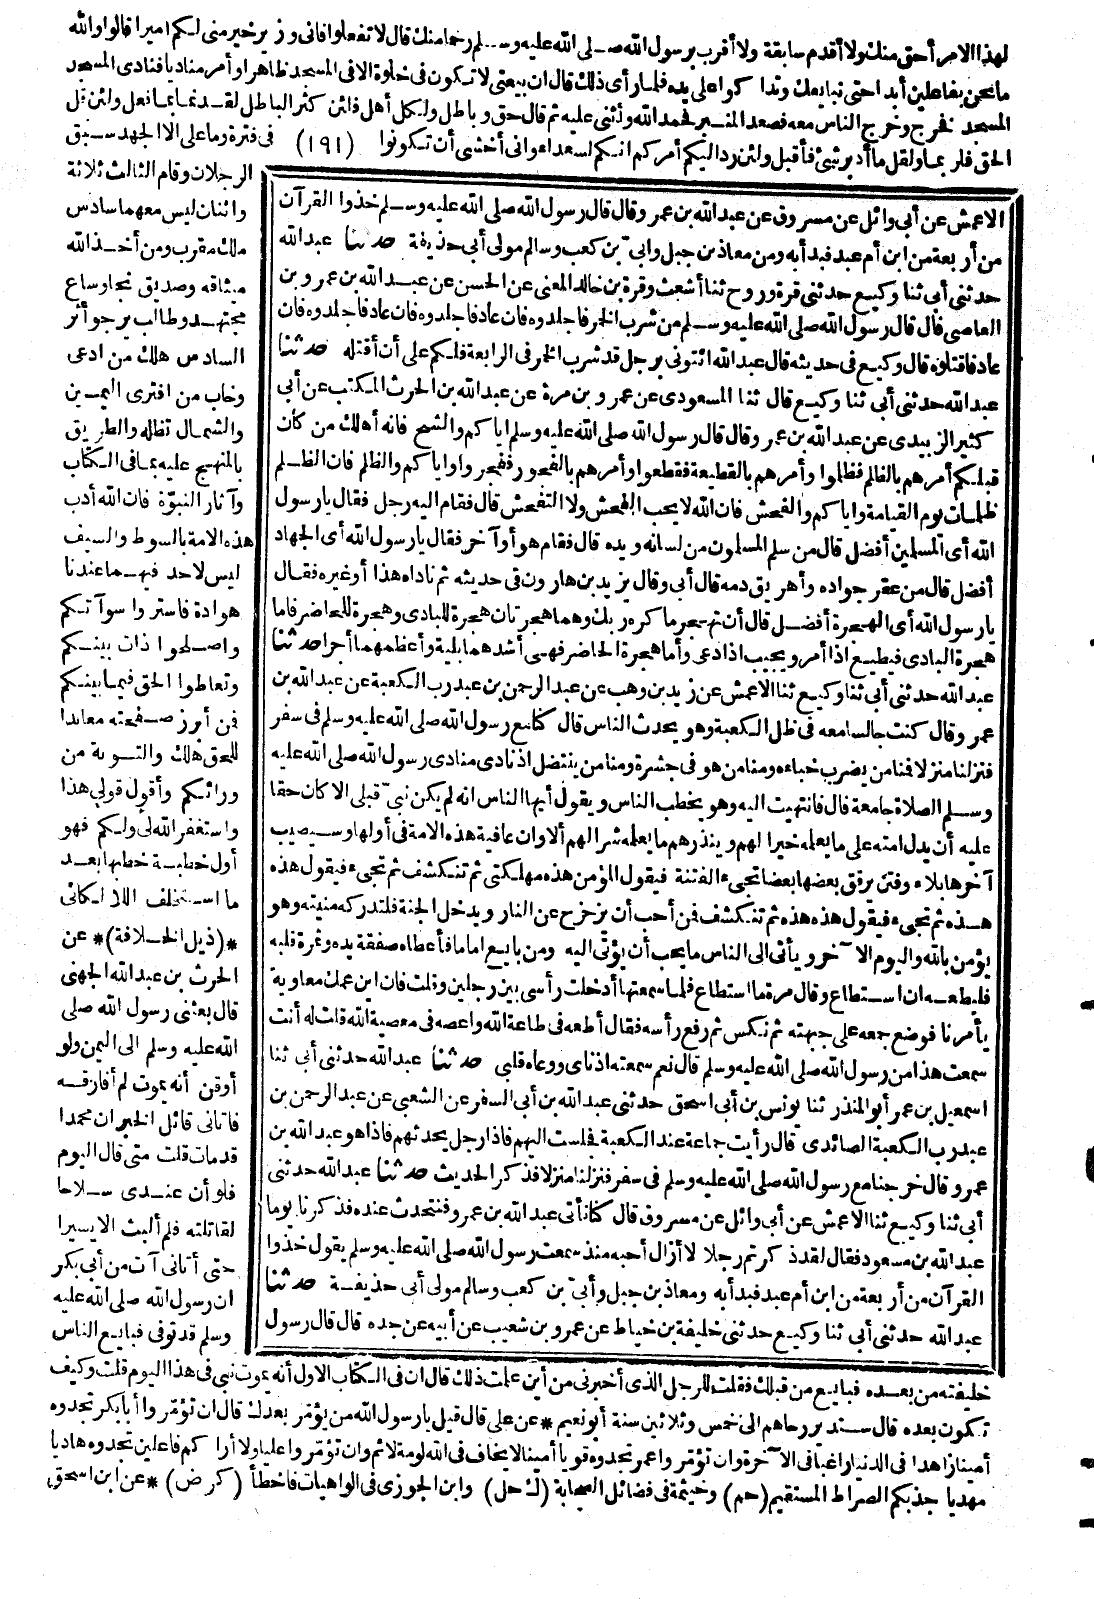 لهذا الامر أحق منك ولا أقدم سابقة ولا أقرب برسول الله صلى الله عليه وسلم رحما منك قال لا تفعلوا فانى وزير خير منى لكم أميرا قالوا والله
ما نحن بفاعلين أبدا حتى نبايعك وتدا كوا على يده فلما رأى ذلك قال ان بيعتى لا تكون فى خلوة الا فى المسجد ظاهرا وأمر مناديا فنادى المسجد
المسجد فخرج وخرج الناس معه فصعد المنبر فحمد الله وأثنى عليه ثم قال حق وباطل ولكل أهل فلئن كثر الباطل لقديما بما فعل ولئن قل
الحق فلربما ولقل ما أدبر شئ فأقبل ولئن رد اليكم أمركم انكم لسعداء وانى أخشى أن تكونوا (١٩١) فى فترة وما على الا الجهد سبق
الرجلان وقام الثالث ثلاثة
واثنان ليس معهما سادس
ملك مقرب ومن أخذ الله
ميثاقه وصديق نجا وساع
مجتهد وطالب يرجو أثر
السادس هلك من ادعى
وخاب من افترى اليمين
والشمال تظله والطريق
بالمنهج عليه بما فى الكتاب
وآثار النبوة فان الله أدب
هذه الامة بالسوط والسيف
ليس لاحد فيهما عندنا
هوادة فاستروا سوآتكم
واصلحوا ذات بينكم
وتعاطوا الحق فيما بينكم
فمن أبرز صفحته معاندا
للحق هلك والتوبة من
ورائكم وأقول قولى هذا
واستغفر الله لى ولكم فهو
أول خطبة خطبها بعد
ما استخلف اللالكائى
*(ذيل الخلافة)* عن
الحرث بن عبد الله الجهنى
قال بعثنى رسول الله صلى
الله عليه وسلم الى اليمن ولو
أوقن أنه يموت لم أفارقه
فاتانى قائل الخبر ان محمدا
قد مات قلت متى قال اليوم
فلو أن عندى سلاحا
لقاتلته فلم ألبث الا يسيرا
حتى أتانى آت من أبى بكر
ان رسول الله صلى الله عليه
وسلم قد توفى فبايع الناس
الاعمش عن أبى وائل عن مسروق عن عبد الله بن عمر وقال قال رسول الله صلى الله عليه وسلم خذوا القرآن
من أربعة من ابن أم عبد فبدأ به ومن معاذ بن جبل وابىّ بن كعب وسالم مولى أبى حذيفة حدثنا عبد الله
حدثنى أبى ثنا وكيع حدثنى قرة وروح ثنا أشعث وقرة بن خالد المعنى عن الحسن عن عبد الله بن عمرو بن
العاصى قال قال رسول الله صلى الله عليه وسلم من شرب الخمر فاجلدوه فان عاد فاجلدوه فان عاد فاجلدوه فان
عاد فاقتلوه قال وكيع فى حديثه قال عبد الله ائتونى برجل قد شرب الخمر فى الرابعة فلكم على أن أقتله حدثنا
عبد الله حدثنى أبى ثنا وكيع قال ثنا المسعودى عن عمرو بن مرة عن عبد الله بن الحرث المكتب عن أبى
كثير الزبيدى عن عبد الله بن عمر وقال قال رسول الله صلى الله عليه وسلم اياكم والشح فانه أهلك من كان
قبلكم أمرهم بالظلم فظلموا وأمرهم بالقطيعة فقطعوا وأمرهم بالفجور ففجروا واياكم والظلم فان الظلم
ظلمات يوم القيامة واياكم والفحش فان الله لا يحب الفحش ولا التفحش قال فقام اليه رجل فقال يا رسول
الله أى المسلمين أفضل قال من سلم المسلمون من لسانه ويده قال فقام هو أو آخر فقال يا رسول الله أى الجهاد
أفضل قال من عقر جواده وأهريق دمه قال أبى وقال يزيد بن هارون فى حديثه ثم ناداه هذا أو غيره فقال
يا رسول الله أى الهجرة أفضل قال أن تهجر ما كره ربك وهما هجرتان هجرة للبادى وهجرة للحاضر فاما
هجرة البادى فيطيع اذا أمر ويجيب اذا دعى وأما هجرة الحاضر فهى أشدهما بلية وأعظمهما أجرا حدثنا
عبد الله حدثنى أبى ثنا وكيع ثنا الاعمش عن زيد بن وهب عن عبد الرحمن بن عبد رب الكعبة عن عبد الله بن
عمر وقال كنت جالسا معه فى ظل الكعبة وهو يحدث الناس قال كنا مع رسول الله صلى الله عليه وسلم فى سفر
فنزلنا منزلا فمنا من يضرب خباءه ومنا من هو فى جشرة ومنا من ينتضل اذ نادى منادى رسول الله صلى الله عليه
وسلم الصلاة جامعة قال فانتهيت اليه وهو يخطب الناس ويقول أيها الناس انه لم يكن نبىّ قبلى الا كان حقا
عليه أن يدل امته على ما يعلمه خيرا لهم وينذرهم ما يعلمه شرا لهم ألا وان عافية هذه الامة فى أولها وسيصيب
آخرها بلاء وفتن يرقق بعضها بعضا تجىء الفتنة فيقول المؤمن هذه مهلكتى ثم تنكشف ثم تجىء فيقول هذه
هذه ثم تجىء فيقول هذه هذه ثم تنكشف فمن أحب أن يزحزح عن النار ويدخل الجنة فلتدركه منيته وهو
يؤمن بالله واليوم الآخر ويأتى الى الناس ما يحب أن يؤتى اليه ومن بايع اماما فأعطاه صفقة يده وثمرة قلبه
فليطعه ان استطاع وقال مرة ما استطاع فلما سمعتها أدخلت رأسى بين رجلين وقلت فان ابن عمك معاوية
يأمرنا فوضع جمعه على جبهته ثم نكس ثم رفع رأسه فقال أطعه فى طاعة الله واعصه فى معصية الله قلت له أنت
سمعت هذا من رسول الله صلى الله عليه وسلم قال نعم سمعته اذناى ووعاه قلبى حدثنا عبد الله حدثنى أبى ثنا
اسمعيل بن عمر أبو المنذر ثنا يونس بن أبى اسحق حدثنى عبد الله بن أبى السفر عن الشعبى عن عبد الرحمن بن
عبد رب الكعبة الصائدى قال رأيت جماعة عند الكعبة فجلست اليهم فاذا رجل يحدثهم فاذا هو عبد الله بن
عمرو قال خرجنا مع رسول الله صلى الله عليه وسلم فى سفر فنزلنا منزلا فذكر الحديث حدثنا عبد الله حدثنى
أبى ثنا وكيع ثنا الاعمش عن أبى وائل عن مسروق قال كنا نأتى عبد الله بن عمرو فنتحدث عنده فذكرنا يوما
عبد الله بن مسعود فقال لقد ذكرتم رجلا لا أزال أحبه منذ سمعت رسول الله صلى الله عليه وسلم يقول خذوا
القرآن من أربعة من ابن أم عبد فبدأ به ومعاذ بن جبل وأبىّ بن كعب وسالم مولى أبى حذيفة حدثنا
عبد الله حدثنى أبى ثنا وكيع حدثنى خليفة بن خياط عن عمرو بن شعيب عن أبيه عن جده قال قال رسول
خليفته من بعده فبايع من قبلك فقلت للرجل الذى أخبرنى من أين علمت ذلك قال ان فى الكتاب الاول أنه يموت نبى فى هذا اليوم قلت وكيف
تكون بعده قال ستدير رحاهم الى خمس وثلاثين سنة أبو نعيم * عن على قال قيل يا رسول الله من يؤمر بعدك قال ان تؤمروا أبا بكر تجدوه
أمينا زاهدا فى الدنيا راغبا فى الآخرة وان تؤمروا عمر تجدوه قويا أمينا لا يخاف فى الله لومة لائم وان تؤمروا عليا ولا أراكم فاعلين تجدوه هاديا
مهديا جذبكم الصراط المستقيم (حم) وخيثمة فى فضائل الصحابة (ك حل) وابن الجوزى فى الواهيات فاخطأ (كر ض) * عن ابن اسحق